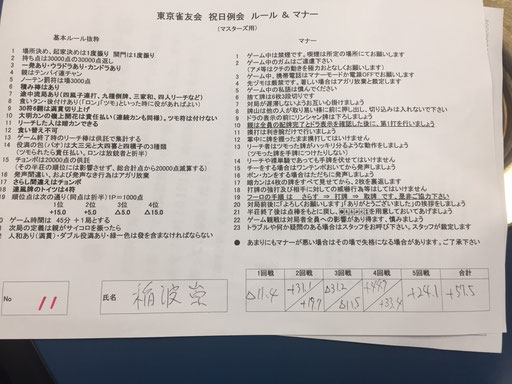 東京雀友会 祝日例会 ルール & マナー
(マスターズ用)
基本ルール抜粋
1 場所決め、起家決めは1度振り 開門は1度振り
2 持ち点は30000点の30000点返し
3 一発あり・ウラドラあり・カンドラあり
4 親はテンパイ連チャン
5 ノーテン罰符は場3000点
6 積み棒はあり
7 途中流局あり(四風子連打、九種倒牌、三家和、四人リーチなど)
8 食いタン・後付けあり(「ロン」「ツモ」といった時に役があればよい)
9 30符6翻は満貫切り上げ
10 大明カンの嶺上開花は責任払い(連続カンも同様)。ツモ符は付けない
11 リーチした人は暗カンできる
12 食い替え不可
13 ゲーム終了時のリーチ棒は供託で集計する
14 役満の包(パオ)は大三元と大四喜と四槓子の3種類
(ツモられたら責任払い、ロンは放銃者と折半)
15 チョンボは20000点の供託
(その半荘の順位には影響させず、総合計点から20000点減算する)
16 発声間違い、および発声なき行為はアガリ放棄
17 さらし間違えはチョンボ
18 連風牌のトイツは4符
19 順位点は次の通り(同点は折半)1P=1000点
1位 2位 3位 4位
+15.0 +5.0 △5.0 △15.0
20 ゲーム時間は 45分 +1局とする
次局の定義は親がサイコロを振ったら
人和あり(満貫)・ダブル役満あり・緑一色は發を含まなければならない
マナー
1 ゲーム中は禁煙です。喫煙は所定の場所にてお願いします
2 ゲーム中のガムはご遠慮下さい
(アメ等はクチの動きを極力おとなしくお願いします)
3 ゲーム中、携帯電話はマナーモードか電源OFFでお願いします
4 先ヅモは厳禁です。著しい場合はアガリ放棄と裁定します
5 ゲーム中の私語は慎んでください
6 捨て牌は6枚3段切りです
7 対局が遅滞しないようお互い心掛けましょう
8 牌山は他の人が取り易い様に前に押し出し、切り込みは入れないで下さい
9 ドラの表示の前にリンシャン牌は下ろしましょう
10 親は全員の配牌完了とドラ表示を確認した後に、第1打を行いましょう
11 摸打は利き腕だけで行いましょう
12 掌中に牌を握ったまま摸打してはいけません
13 リーチ者はツモった牌がハッキリ分るような動作をしましょう
(ツモった牌を手牌につけたりしない)
14 リーチや裸単騎であっても手牌を伏せてはいけません
15 チーをする場合はワンテンポおいてから発声しましょう
16 ポン・カンをする場合はただちに発声しましょう
17 暗カンは4枚の牌をすべて見せてから、2枚を裏返します
18 打牌の強打及び相手に対しての威嚇行為等はしてはいけません
19 フーロの手順は さらす ⇒ 打牌 ⇒ 取牌 です。是非ご協力下さい
20 対局前後に「よろしくお願いします」「ありがとうございました」の挨拶をしましょう
21 半荘終了後は点棒をもとに戻し、
22 ゲーム観戦は対局者全員への影響があります、慎みましょう
23 トラブルや何か疑問のある場合はスタッフをお呼び下さい、スタッフが裁定します
● あまりにもマナーが悪い場合はその場で失格になる場合があります。ご了承下さい
No 11 氏名 稲波宗
1回戦 2回戦 3回戦 4回戦 5回戦 合計
△11.4 +31.1 △31.2 +44.9 +24.1 +57.5
+19.7 △11.5 +33.4